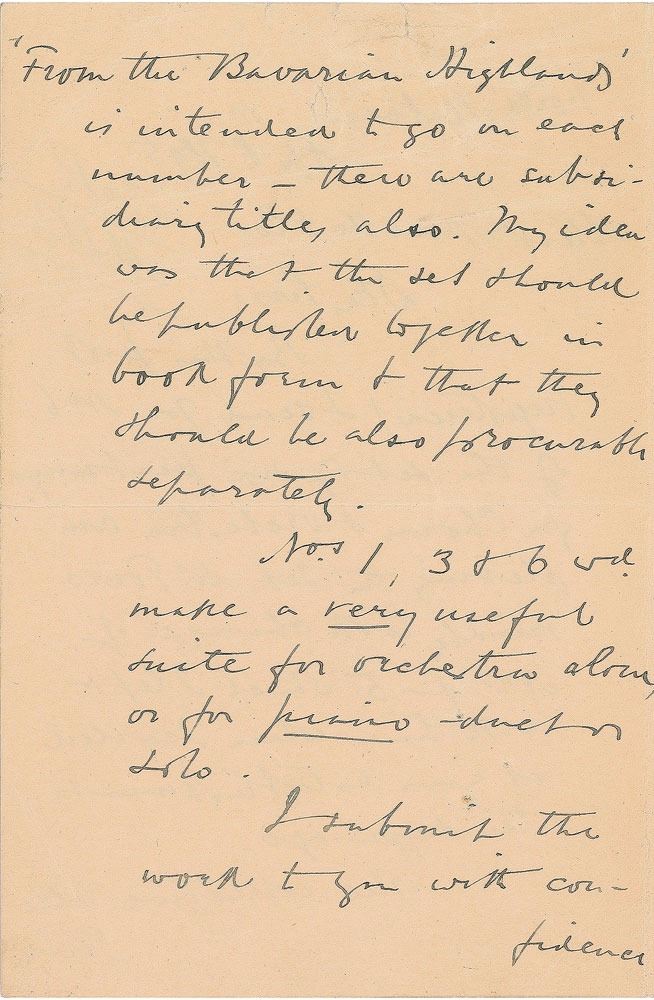 'From the Bavarian Highlands'
is intended to go on each
number – there are subsi-
diary titles also. My idea
was that the set should
be published together in
book form & that they
should be also procurable
separately.
Nos 1, 3 & 6 wd.
make a very useful
suite for orchestra alone,
or for piano -duet or
solo.
I submit the
work to you with con-
fidence